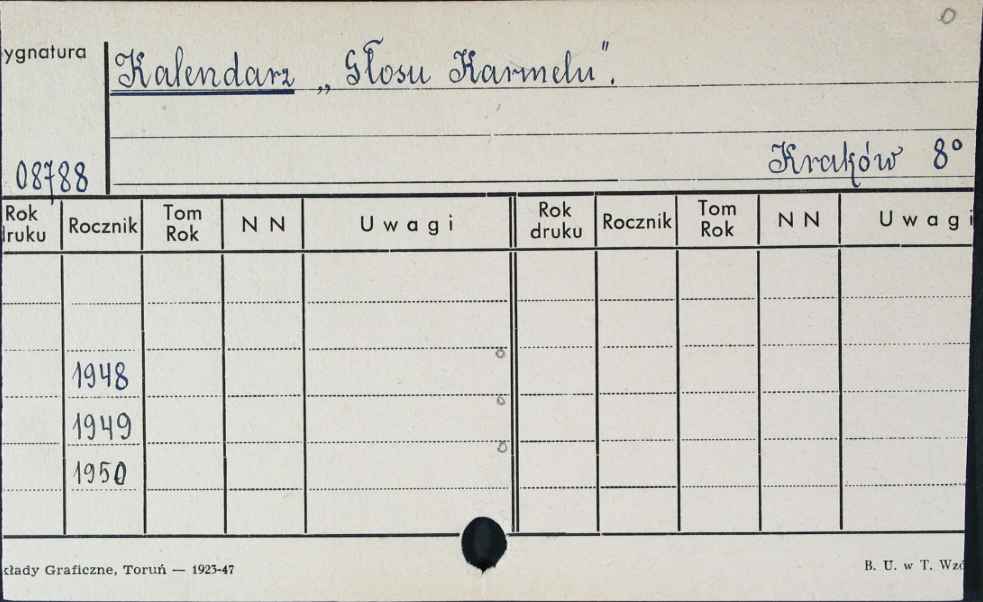 ygnatura
Kalendarz „Głosu Karmelu".
Kraków 8°
08788
Rok druku Rocznik Tom Rok N N Uwagi Rok druku Rocznik Tom Rok N N Uwagi
1948
1949
1950
kłady Graficzne, Toruń — 1923-47 B. U. w T. Wzó